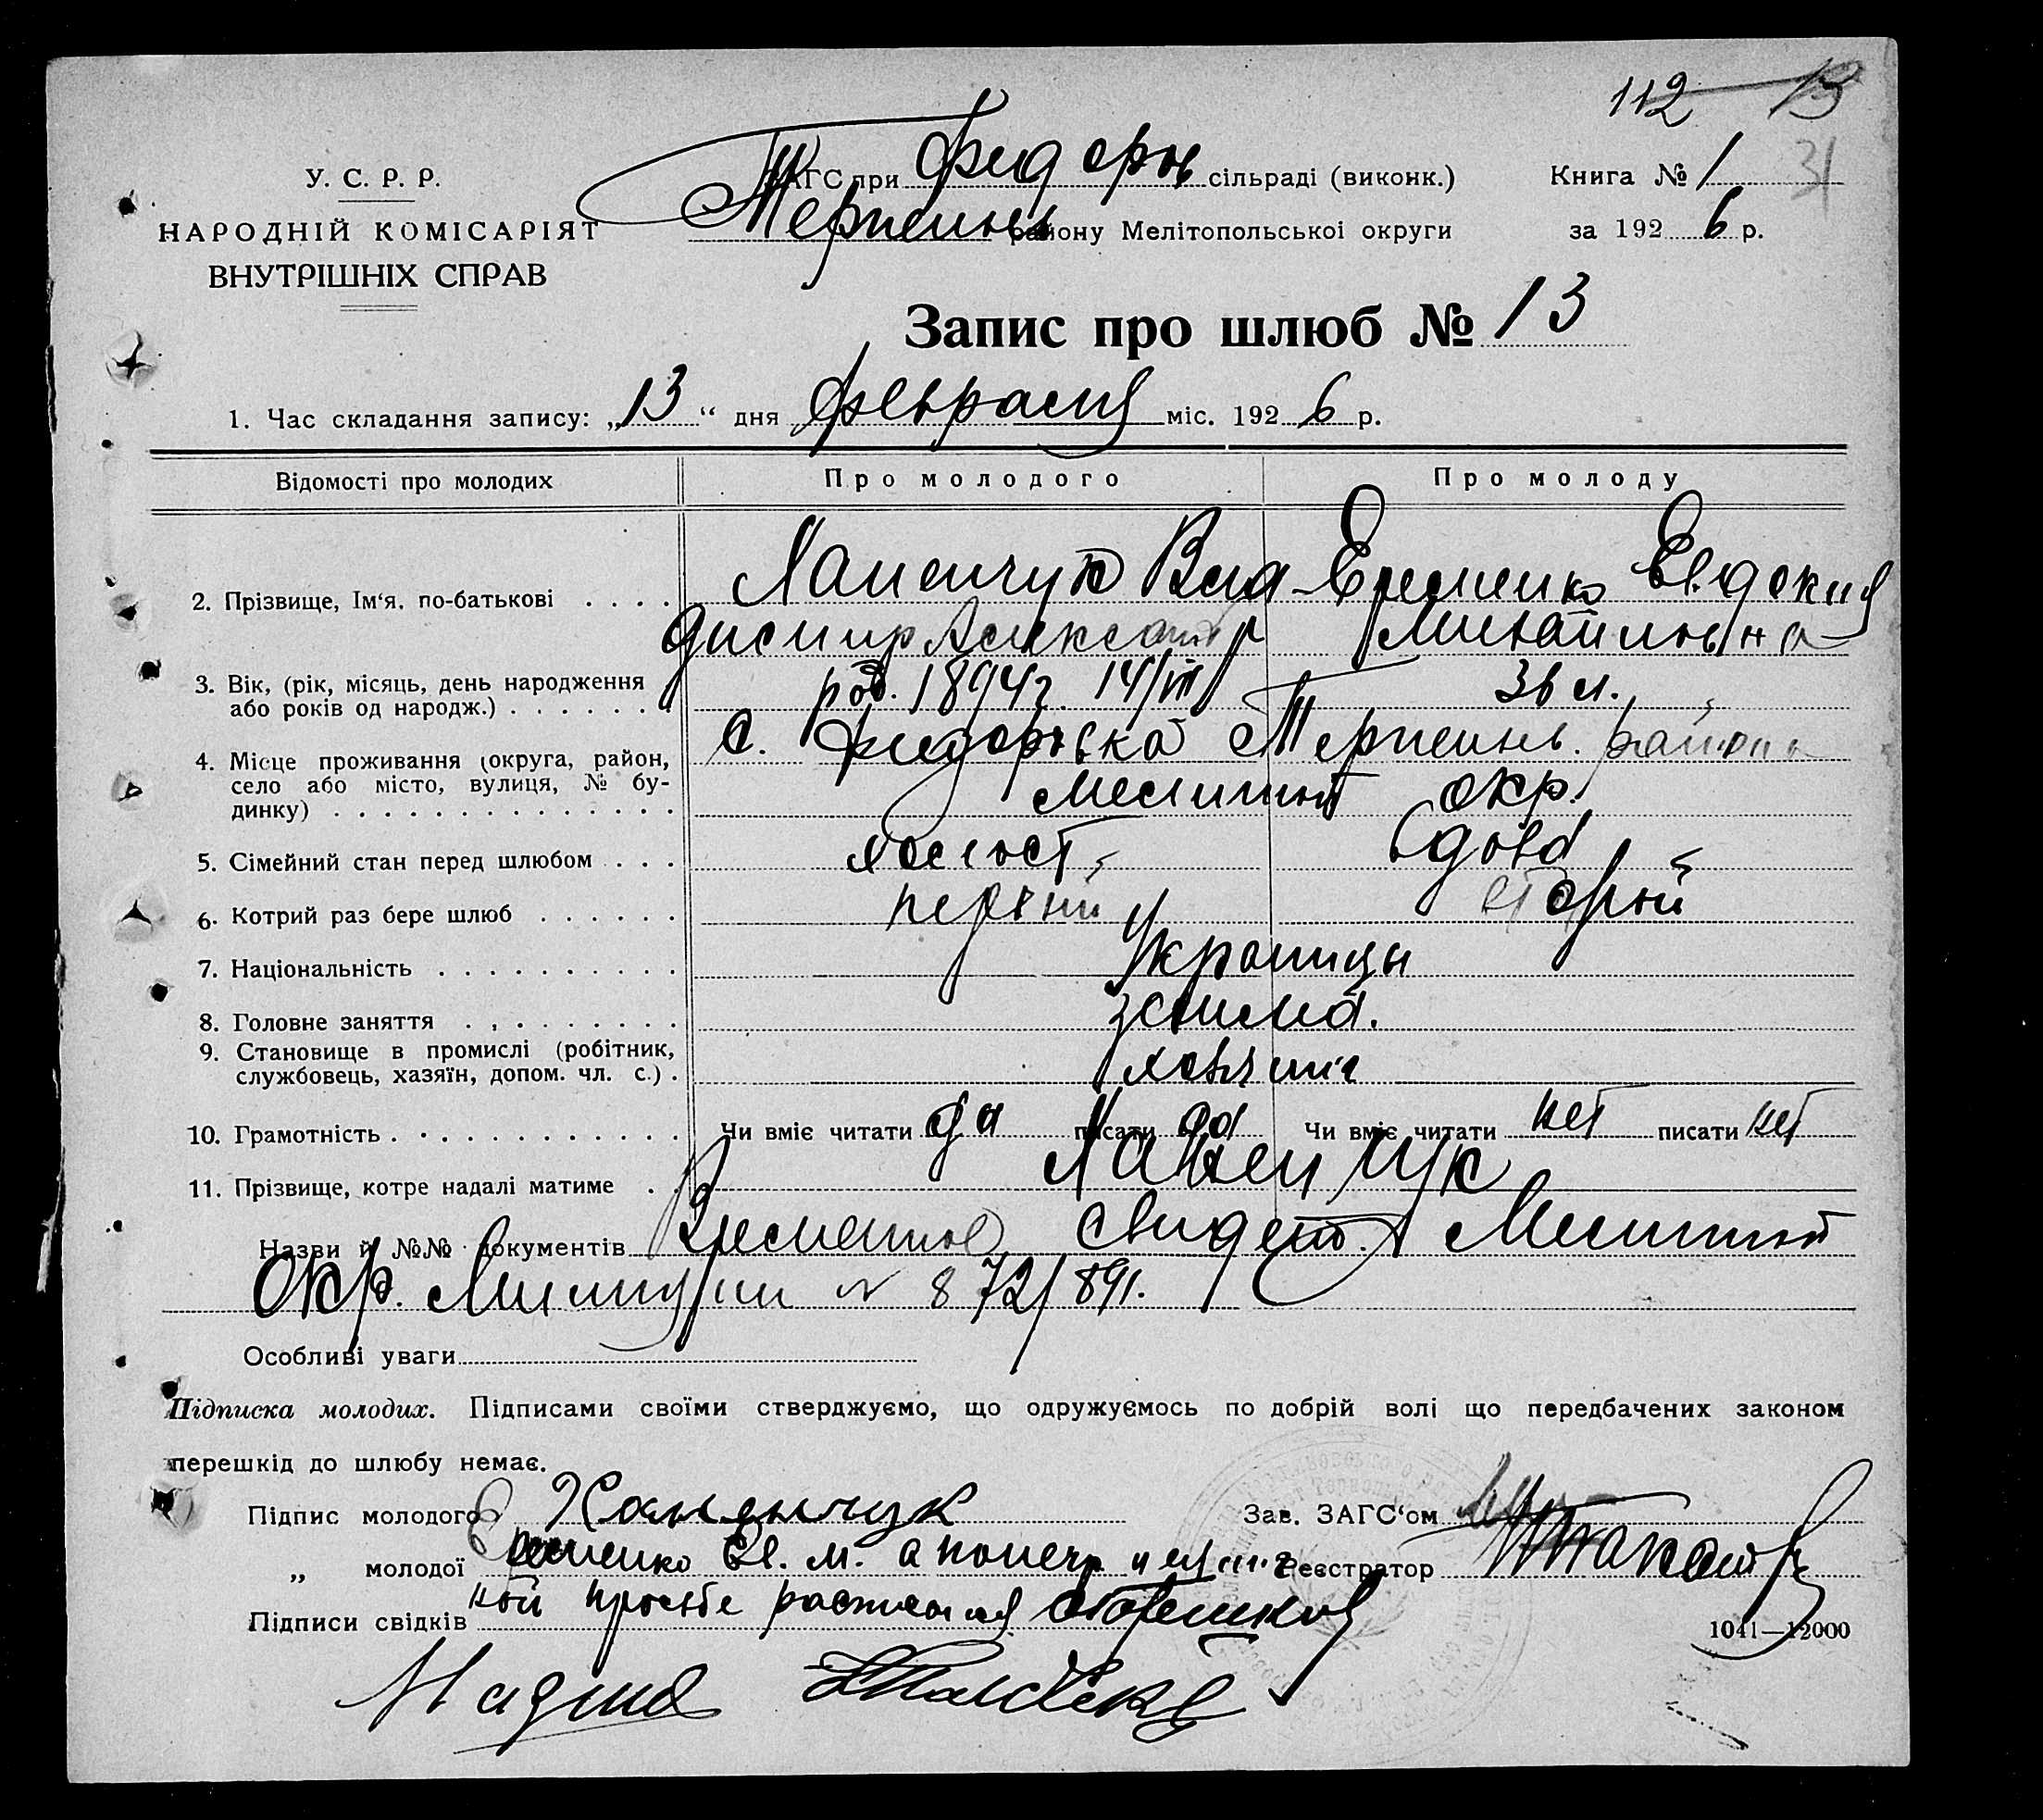 112 13
31
У. С. Р. Р.
НАРОДНІЙ КОМІСАРІЯТ
ВНУТРІШНІХ СПРАВ
ЗАГС при Федоров сільраді (виконк.)
Терпенньев району Мелітопольської округи
Книга № 1
за 1926 р.
Запис про шлюб № 13
1. Час складання запису: „13“ дня февраля міс. 1926 р.
Відомості про молодих Про молодого Про молоду
2. Прізвище, Ім‘я, по-батькові . . . . Ханенчук Вла Еременко Евдокия
димир Александр Михайловна
3. Вік, (рік, місяць, день народження
або років од народж.) . . . . . . . род. 1894 г. 14/VII 36 л.
4. Місце проживання (округа, район,
село або місто, вулиця, № бу-
динку) . . . . . . . . . . . . . . с. Федоровка Терпеньев. района
Мелитоп окр.
5. Сімейний стан перед шлюбом . . . холост вдова
6. Котрий раз бере шлюб . . . . . . первый второй
7. Національність . . . . . . . . . . Украинцы
8. Головне заняття . . . . . . . . .
9. Становище в промислі (робітник,
службовець, хазяїн, допом. чл. с.) .
10. Грамотність . . . . . . . . . . . . Чи вміє читати да писати да Чи вміє читати нет писати нет
11. Прізвище, котре надалі матиме . Ханенчук
Назви й №№ документів Временное свидет. Мелитоп
Окр. Милиции № 872/891.
Особливі уваги
Підписка молодих. Підписами своїми стверджуємо, що одружуємось по добрій волі що передбачених законом
перешкід до шлюбу немає.
Підпис молодого Ханенчук
„ молодої Еременко Ев. М. а по неграмот
ной просьбе расписался
Підписи свідків
Зав. ЗАГС‘ом
Реєстратор
1041—12000